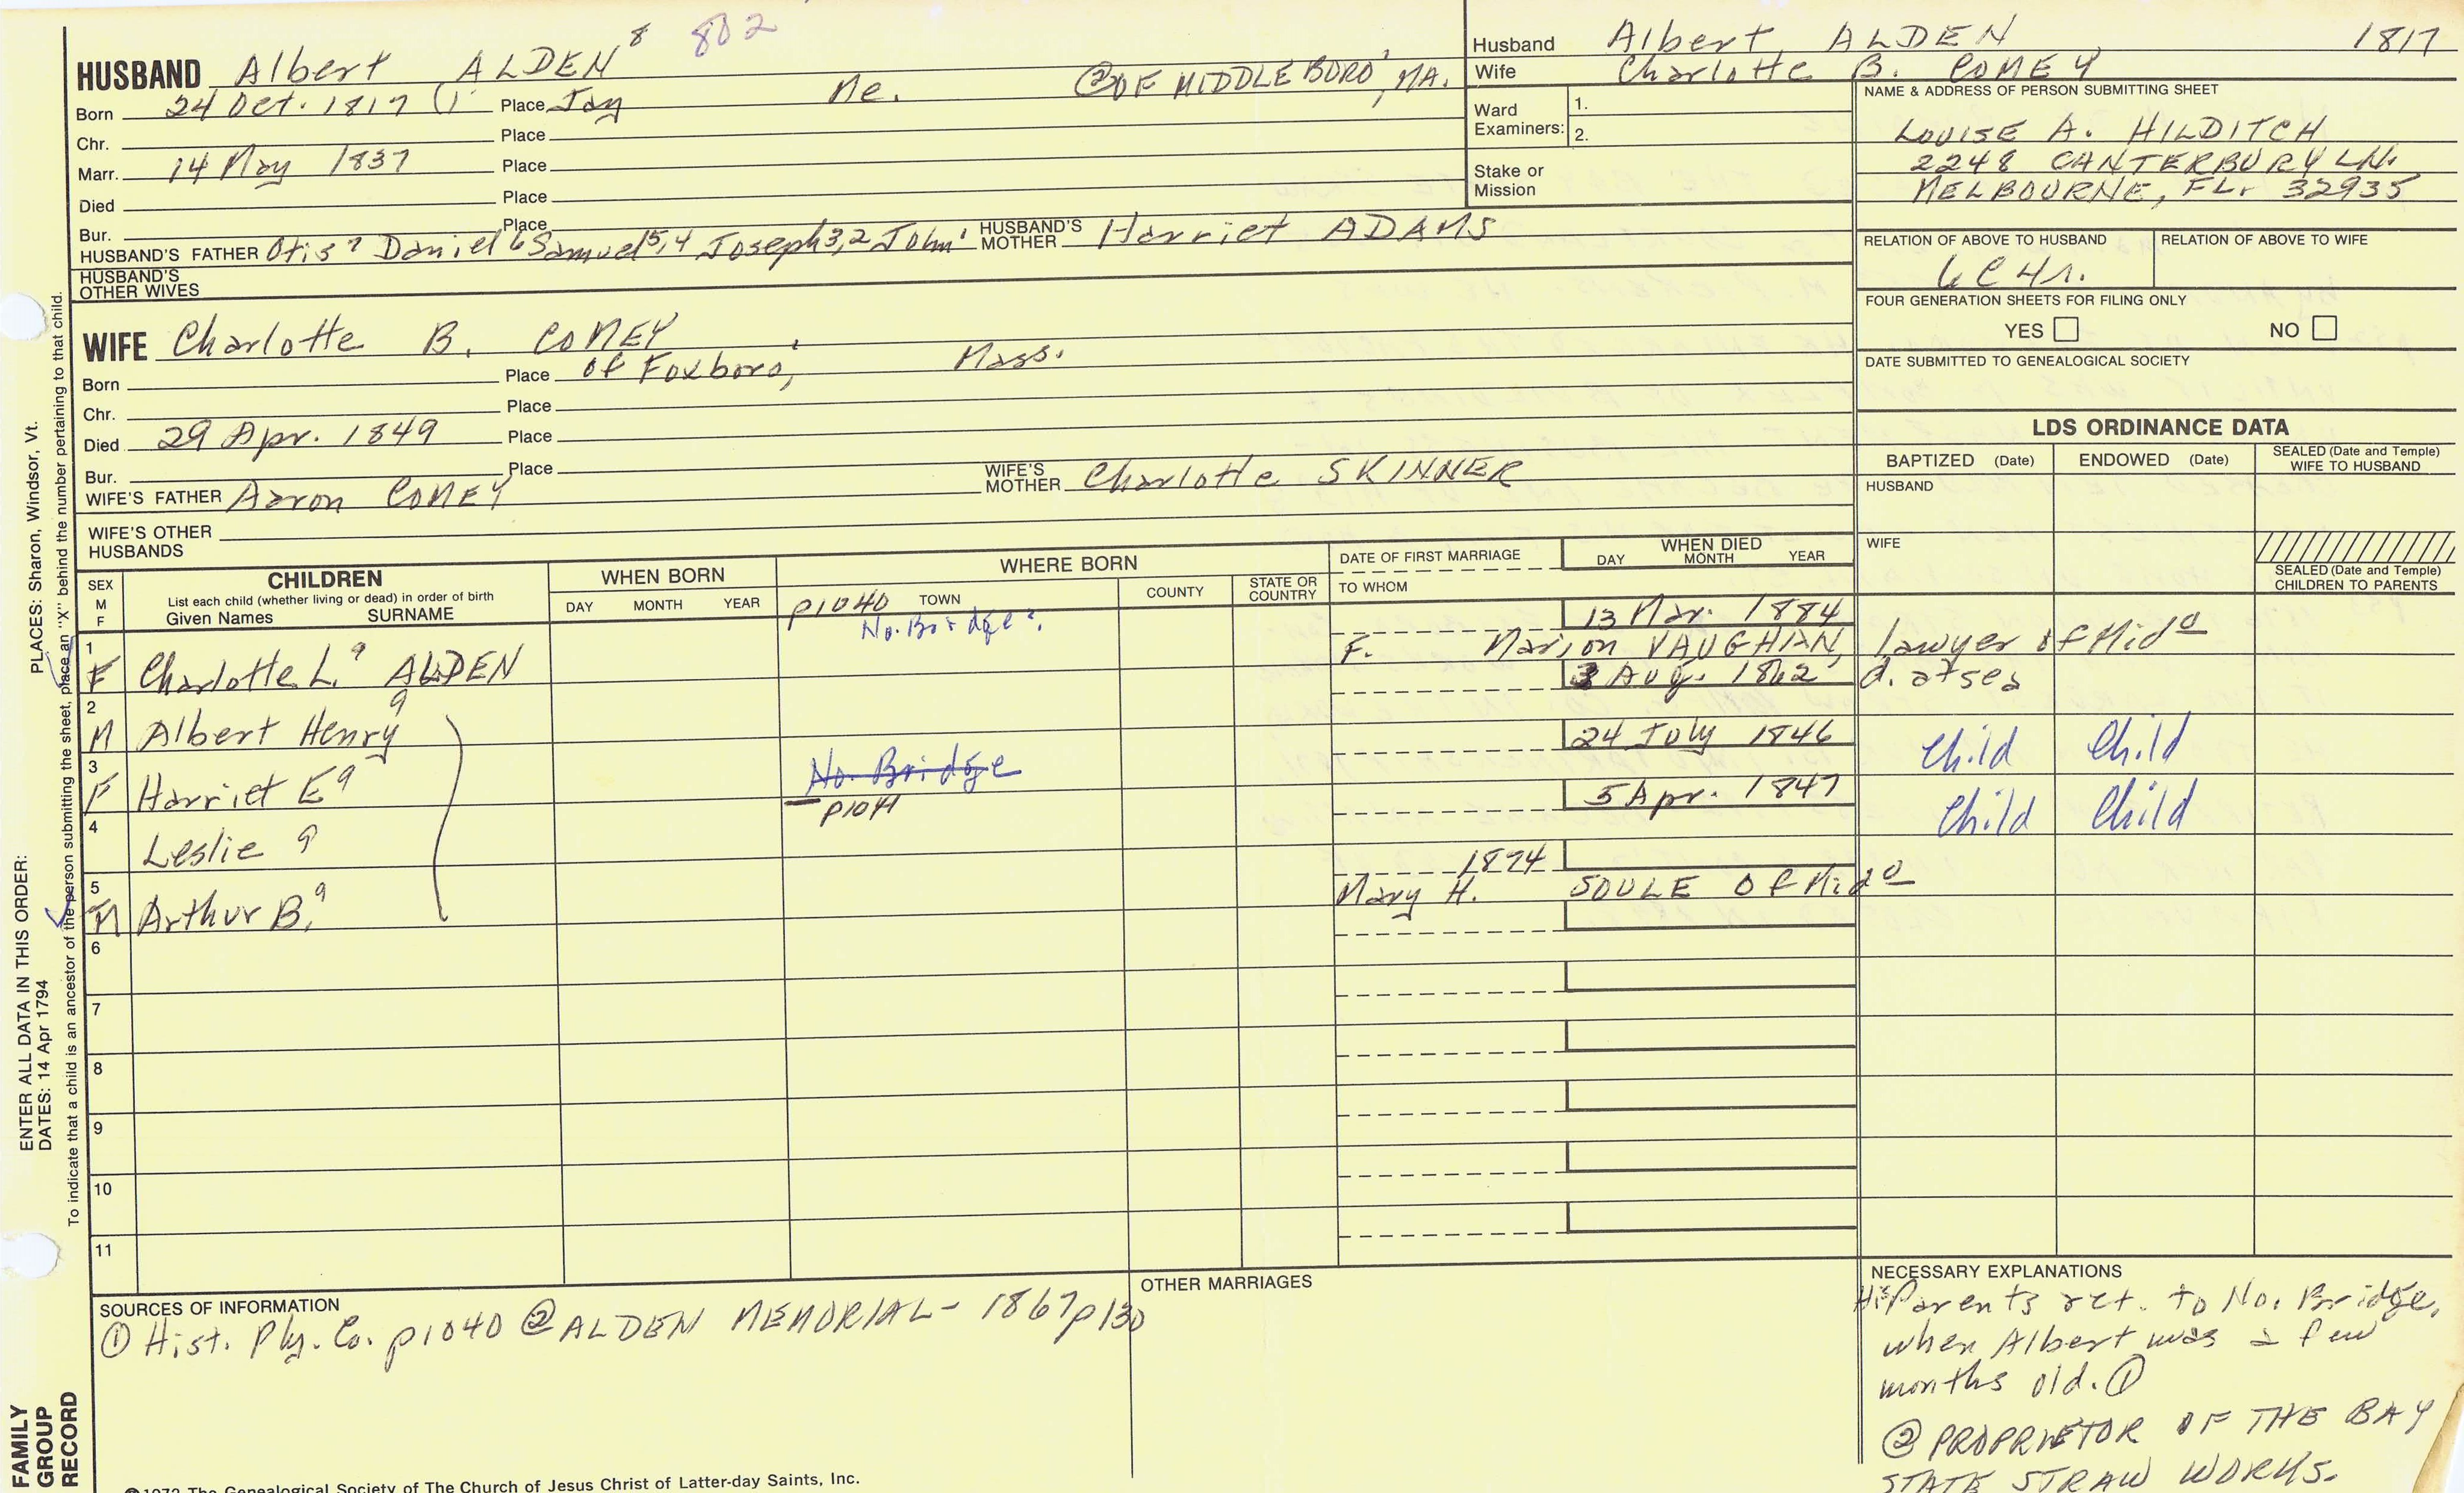 HUSBAND Albert ALDEN 8 802
Born 24 Oct. 1817 (1 Place Jay Me. ② OF MIDDLEBORO', MA.
Chr. Place
Marr. 14 May 1837 Place
Died Place
Bur. Place
HUSBAND'S FATHER Otis 7 Daniel 6 Samuel 5,4 Joseph 3,2 John 1 HUSBAND'S MOTHER Harriet ADAMS
HUSBAND'S OTHER WIVES
WIFE Charlotte B. COMEY
Born Place of Foxboro, Mass.
Chr. Place
Died 29 Apr. 1849 Place
Bur. Place
WIFE'S FATHER Aaron COMEY WIFE'S MOTHER Charlotte SKINNER
WIFE'S OTHER HUSBANDS
Husband Albert ALDEN 1817
Wife Charlotte B. COMEY
Ward Examiners: 1.
2.
Stake or Mission
NAME & ADDRESS OF PERSON SUBMITTING SHEET
LOUISE A. HILDITCH
2248 CANTERBURY LN.
MELBOURNE, FL. 32935
RELATION OF ABOVE TO HUSBAND RELATION OF ABOVE TO WIFE
6C4r.
FOUR GENERATION SHEETS FOR FILING ONLY
YES NO
DATE SUBMITTED TO GENEALOGICAL SOCIETY
LDS ORDINANCE DATA
BAPTIZED (Date) ENDOWED (Date) SEALED (Date and Temple) WIFE TO HUSBAND
HUSBAND
WIFE
SEALED (Date and Temple) CHILDREN TO PARENTS
SEX M F
CHILDREN
List each child (whether living or dead) in order of birth
Given Names SURNAME
WHEN BORN
DAY MONTH YEAR
WHERE BORN
p1040 TOWN COUNTY STATE OR COUNTRY
DATE OF FIRST MARRIAGE
TO WHOM
WHEN DIED
DAY MONTH YEAR
1 F Charlotte L. 9 ALDEN No. Bridge. 13 Mar. 1884
F. Marion VAUGHAN, lawyer of Mido
2 M Albert Henry 9 3 Aug. 1862 d. at sea
3 F Harriet E 9 No. Bridge 24 July 1846 Child Child
4 Leslie 9 p1041 5 Apr. 1847 Child Child
5 M Arthur B. 9 1874
Mary H. SOULE of Mido
6
7
8
9
10
11
SOURCES OF INFORMATION
① Hist. Ply. Co. p1040 ② ALDEN MEMORIAL - 1867 p130
OTHER MARRIAGES
NECESSARY EXPLANATIONS
His Parents ret. to No. Bridge,
when Albert was a few
months old. ①
② PROPRIETOR OF THE BAY
STATE STRAW WORKS.
©1972 The Genealogical Society of The Church of Jesus Christ of Latter-day Saints, Inc.
FAMILY GROUP RECORD
ENTER ALL DATA IN THIS ORDER:
DATES: 14 Apr 1794
PLACES: Sharon, Windsor, Vt.
To indicate that a child is an ancestor of the person submitting the sheet, place an "X" behind the number pertaining to that child.